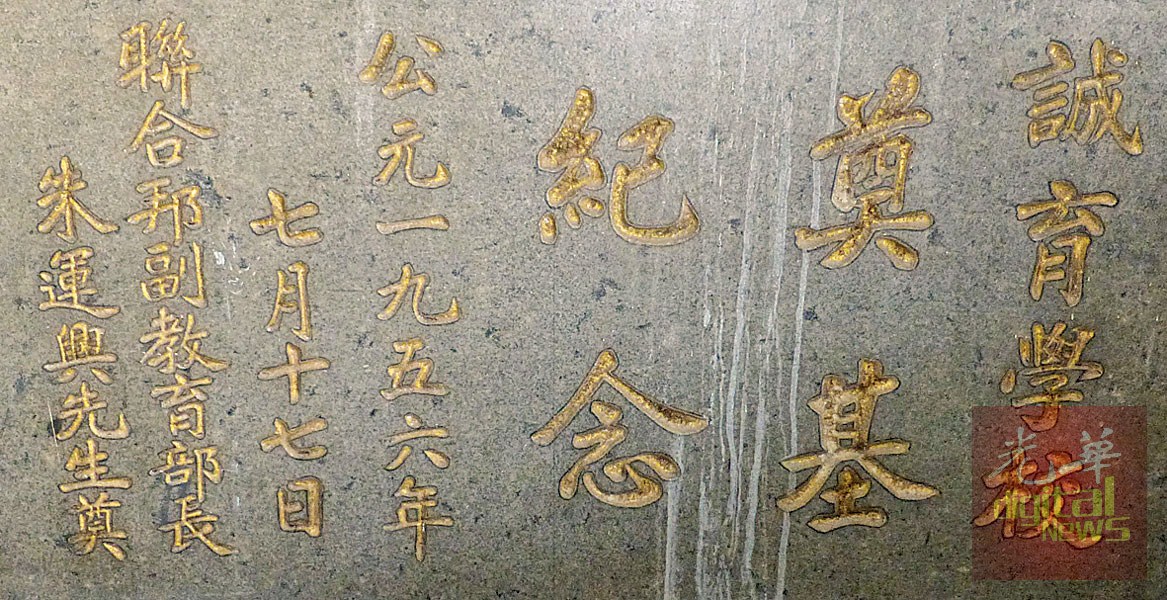 誠育學校
奠基
紀念
公元一九五六年
七月十七日
聯合邦副教育部長
朱運興先生奠
光華
digital
NEWS